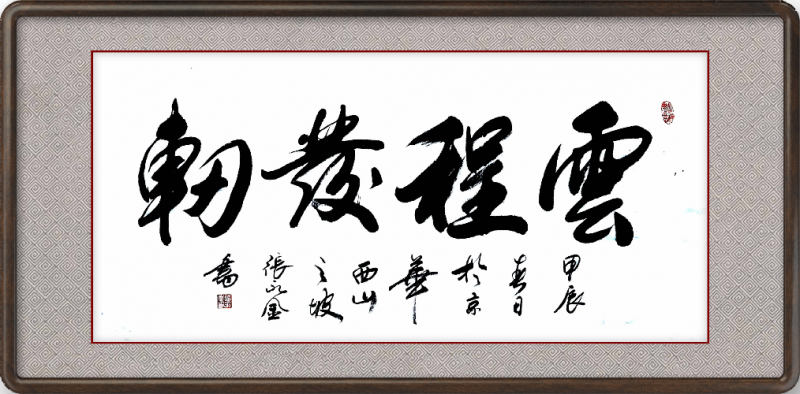 雲程發軔
甲辰
春日
於京
華
西山
之坡
張
書